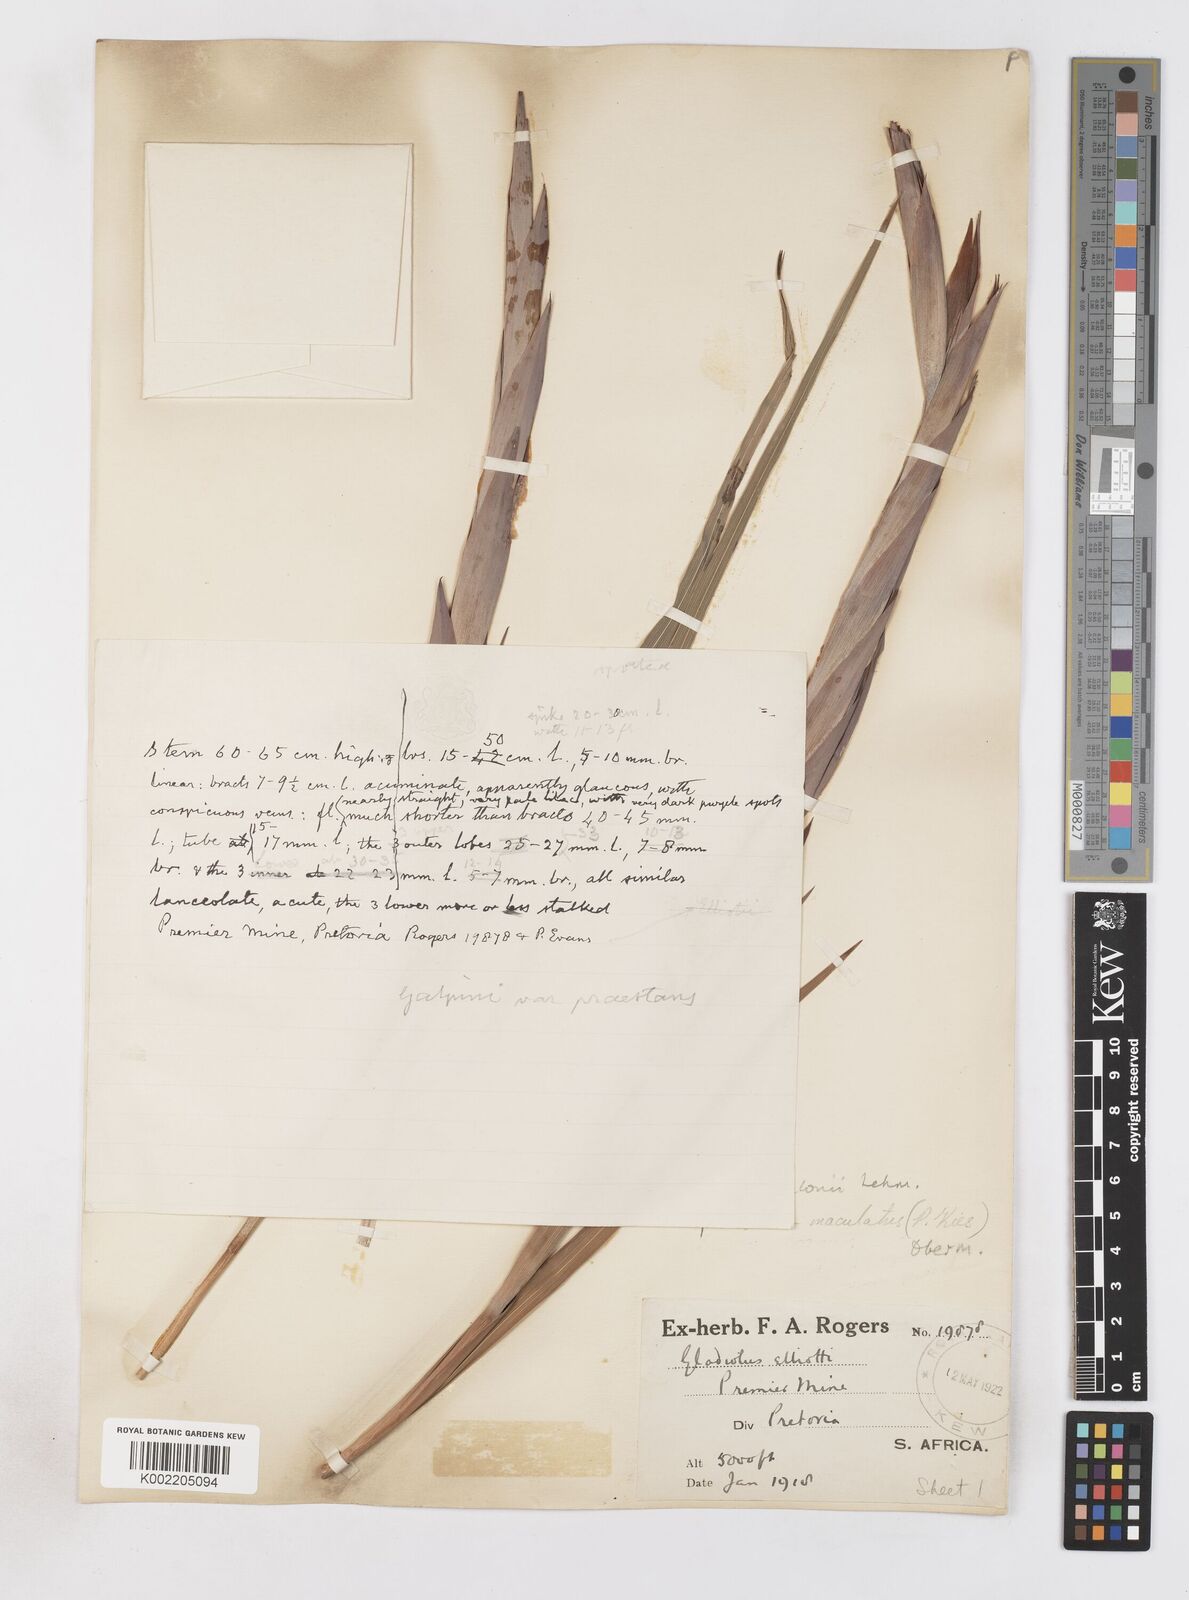 P
spike 20-30 cm. l.
with 11-13 fl
Stem 60-65 cm. high: lvs. 15-42 50 cm. l., 5-10 mm. br.
linear: bracts 7-9½ cm. l. acuminate, apparently glaucous, with
conspicuous veins: fl. (nearly straight, very pale lilac, with very dark purple spots
much shorter than bracts 40-45 mm.
l.; tube 15-17 mm. l; the 3 outer lobes 25-27 mm. l., 7-8 mm
br. & the 3 inner 22-23 mm. l. 5-7 mm. br., all similar
lanceolate, acute, the 3 lower more or less stalked
Premier Mine, Pretoria Rogers 19878 & P. Evans
Galpini var praestans
lonii Lehm.
maculatus (P. Kies)
Oberm.
Ex-herb. F. A. Rogers No. 19878
Gladiolus elliotti
Premier Mine
Div Pretoria
S. AFRICA.
Alt 5000 ft
Date Jan 1918
Sheet 1
12 MAY 1922
KEW
ROYAL BOTANIC GARDENS KEW
K002205094
inches
Density
Don Williams
M000827
Royal Botanic Gardens
Kew
copyright reserved
0 1 2 3 4 5 6 7 8 9 10
cm